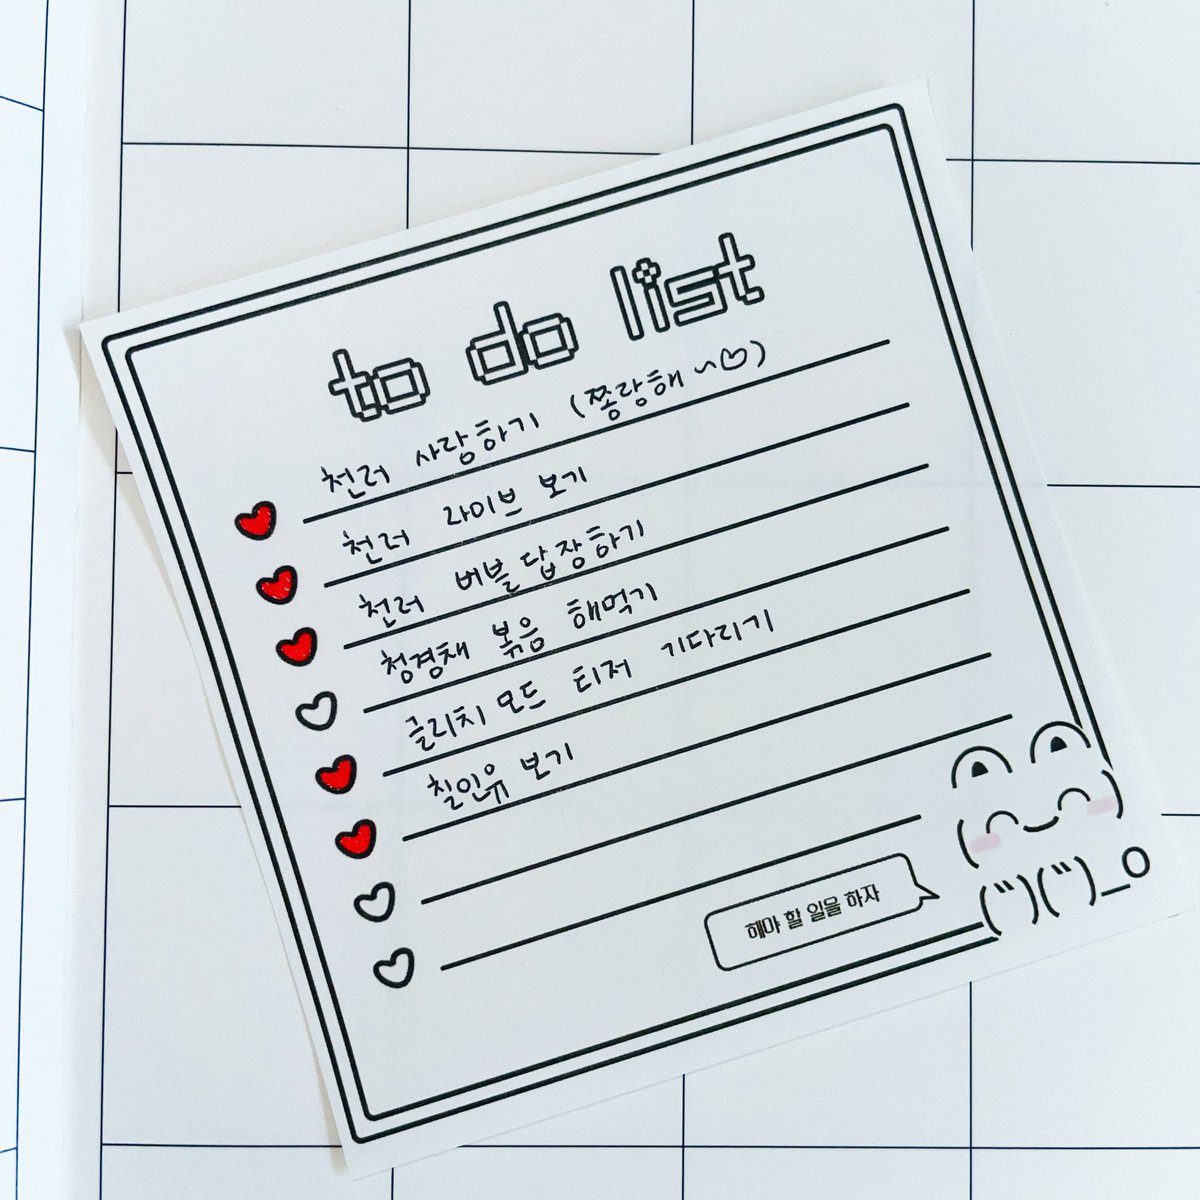 to do list
천러 사랑하기 (쫑랑해~♡)
천러 라이브 보기
천러 버블 답장하기
청경채 볶음 해먹기
글리치 모드 티저 기다리기
칠인유 보기
해야 할 일을 하자
(")(")_o